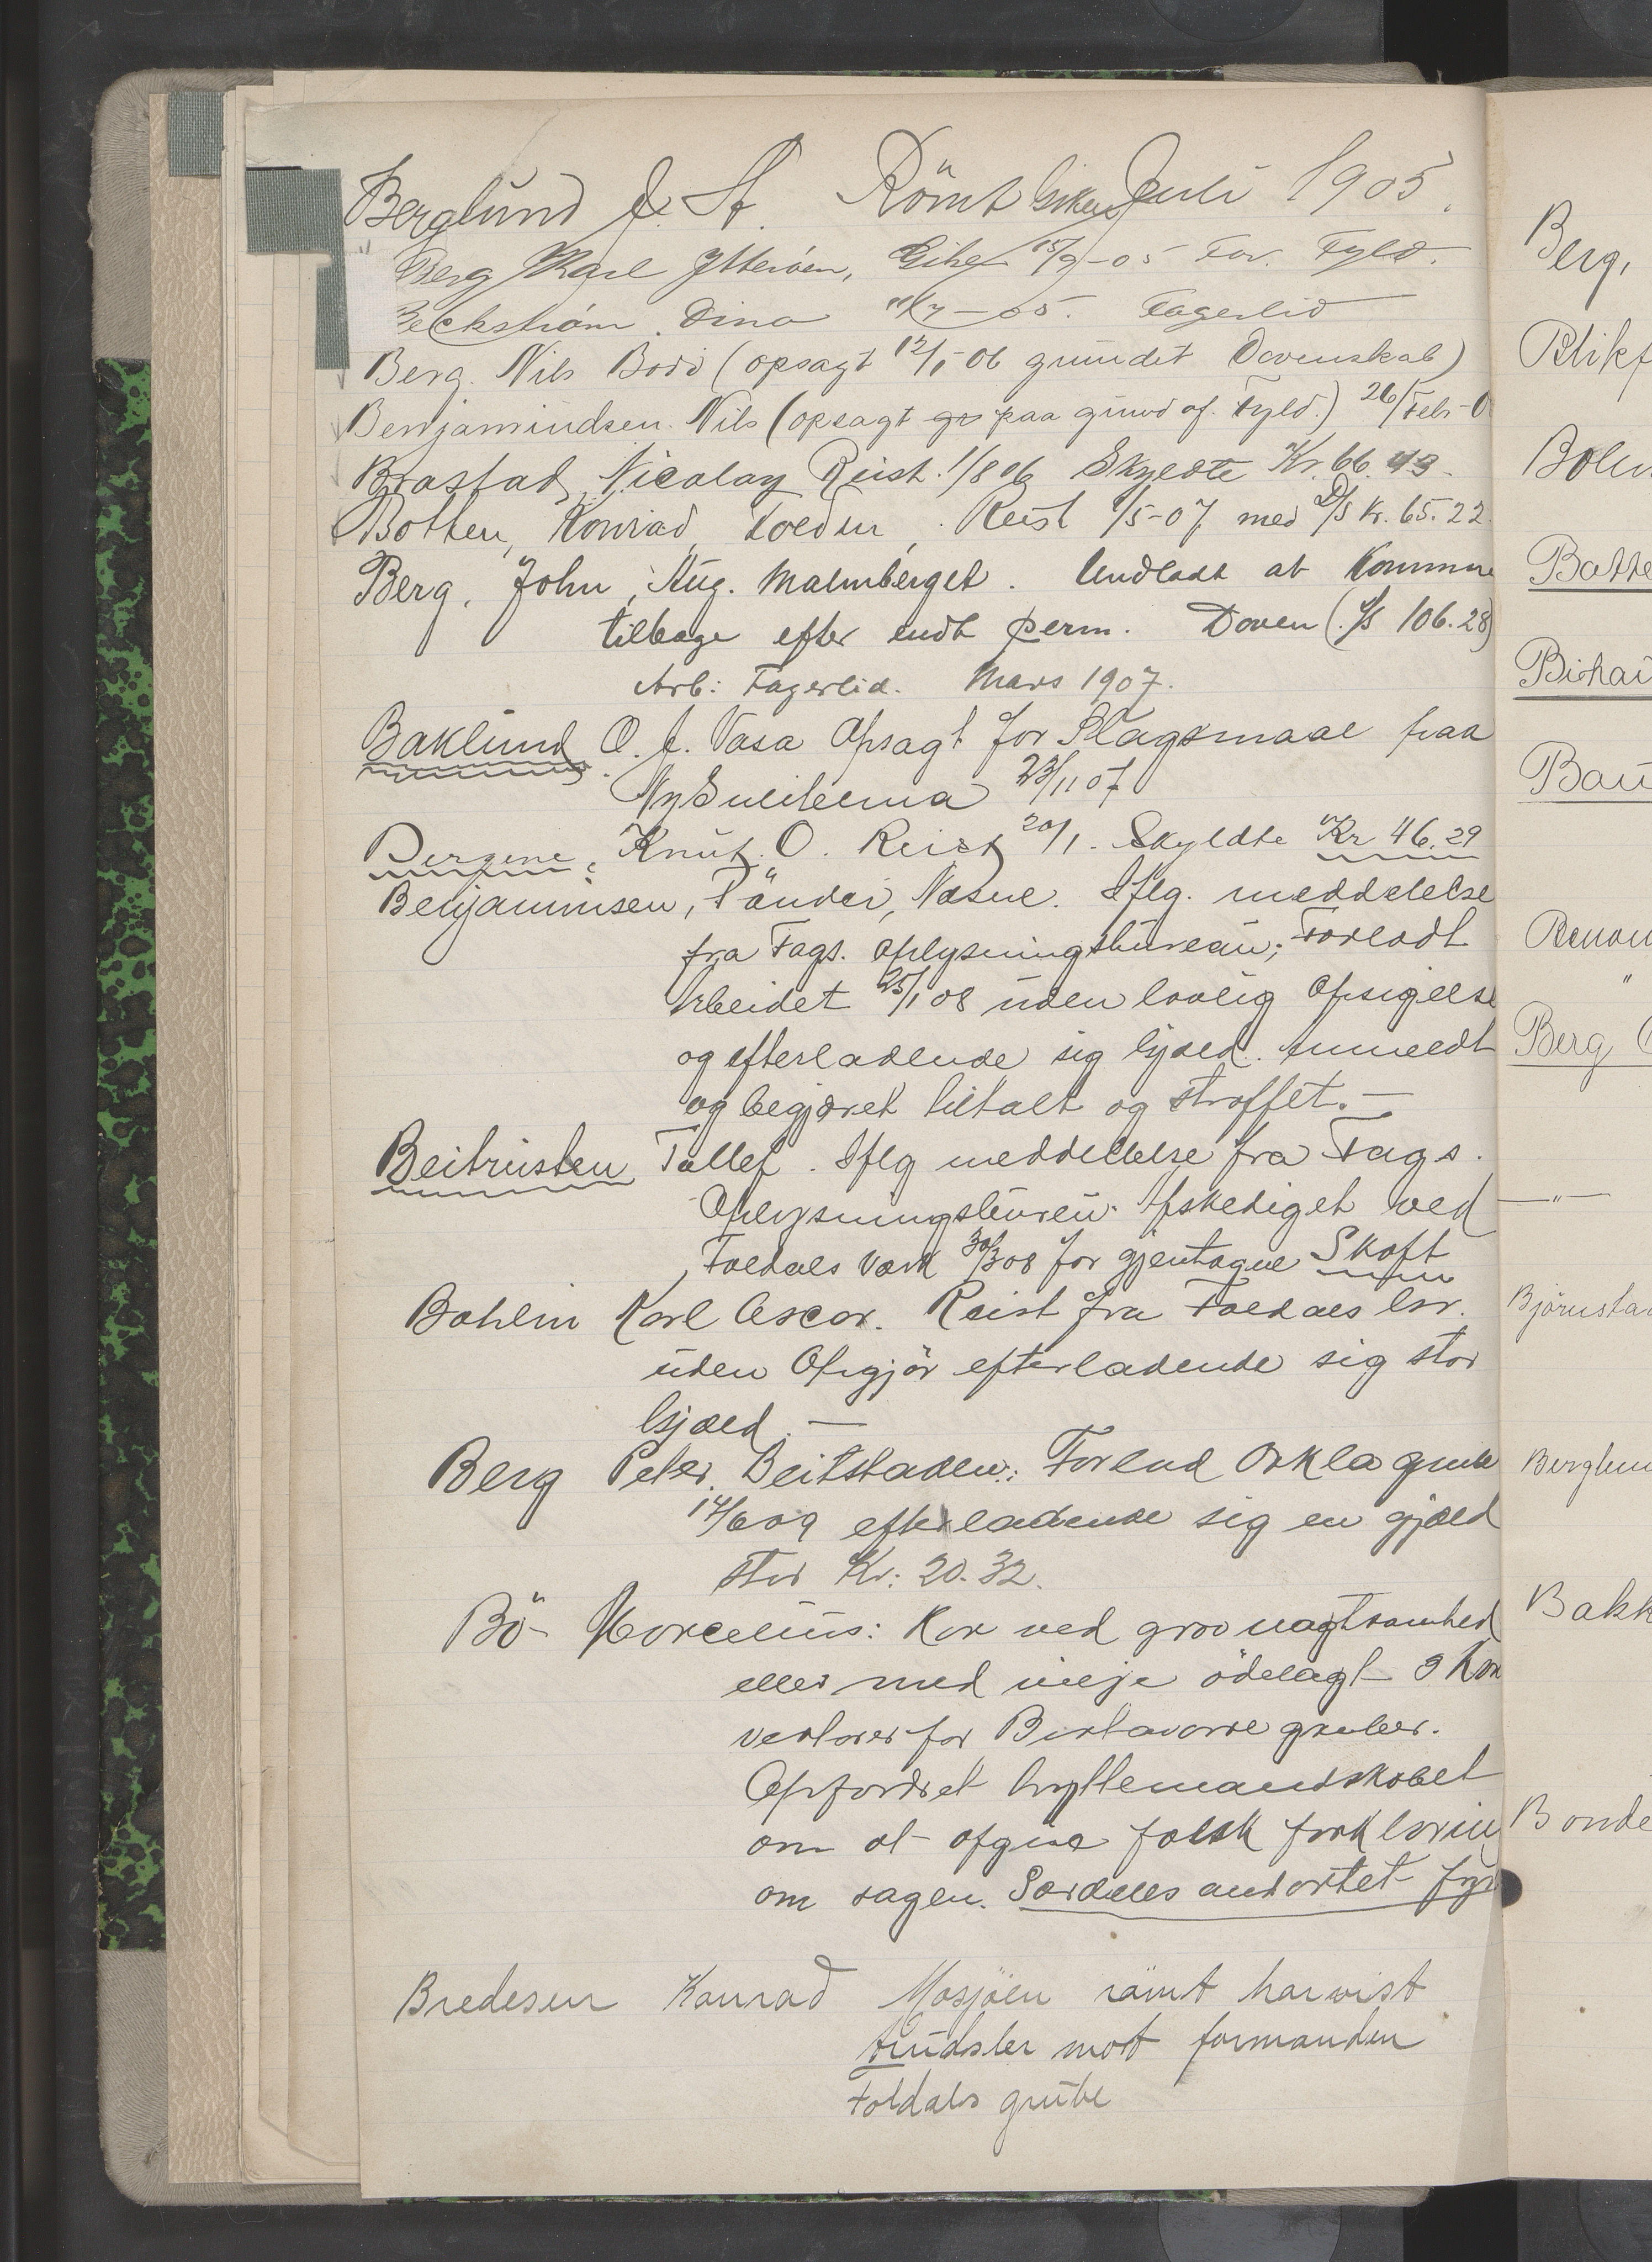 Berglund J. A. Römt Juli 1905.
Berg Karl Ytteröen, 15/9-05 For Fyld.
Beckström. Dina 11/7-05. Fagerlid
Berg. Nils Bodö (opsagt 12/1 06 grundet Dovenskab)
Benjamindsen. Nils (opsagt paa grund af. Fyld.) 26/Feb-0
Brastad, Nicolay Reist. 1/8 06 Skyldte Kr. 66.43
Botten, Konrad, Reist 1/5-07 med Kr. 65.22
Berg, John, Aug. Malmberget. Undladt at komme
tilbage efter endt perm. Doven ( 106.28)
Arb: Fagerlid. Mars 1907.
Baklund O. J. Vasa Opsagt for Slagsmaal paa
Ny Sulitelma 23/11 07
Bergene, Knut. O. Reist 20/1. Skyldte Kr 46.29
Benjaminsen, Næsne. Iflg. meddelelse
fra Fags. Oplysningsbureau; Forladt
Arbeidet 25/1 08 uden lovlig Opsigelse
og efterladende sig Gjæld. Anmeldt
og begjæret tiltalt og straffet.—
Beitrusten Tollef. Iflg meddellelse fra Fags.
Oplysningsbureu. Afskediget ved
Foldals Værk 30/3 08 for gjentagne Skoft
Bohlin Karl Oscar. Reist fra Foldals Gr.
uden Opgjör efterladende sig stor
Gjæld.—
Berg Peter. Beitstaden: Forlod Orkla grube
14/6 09 efterladende sig en gjæld
stor Kr: 20.32.
Bö- Marcelius: Har ved grov uagtsomhed
eller med vilje ödelagt 3 kon
vertorer for Birtavarre gruber.
Opfordret hyttemandskabet
om at afgive falsk forklaring
om sagen. Særdeles
Bredesen Konrad Mosjöen römt har vist
trudsler mot formanden
Foldals grube
Berg,
Blikf
Bolm
Batte
Bau
Berg
—"—
Björnstad
Berglun
Bakk
Bonde